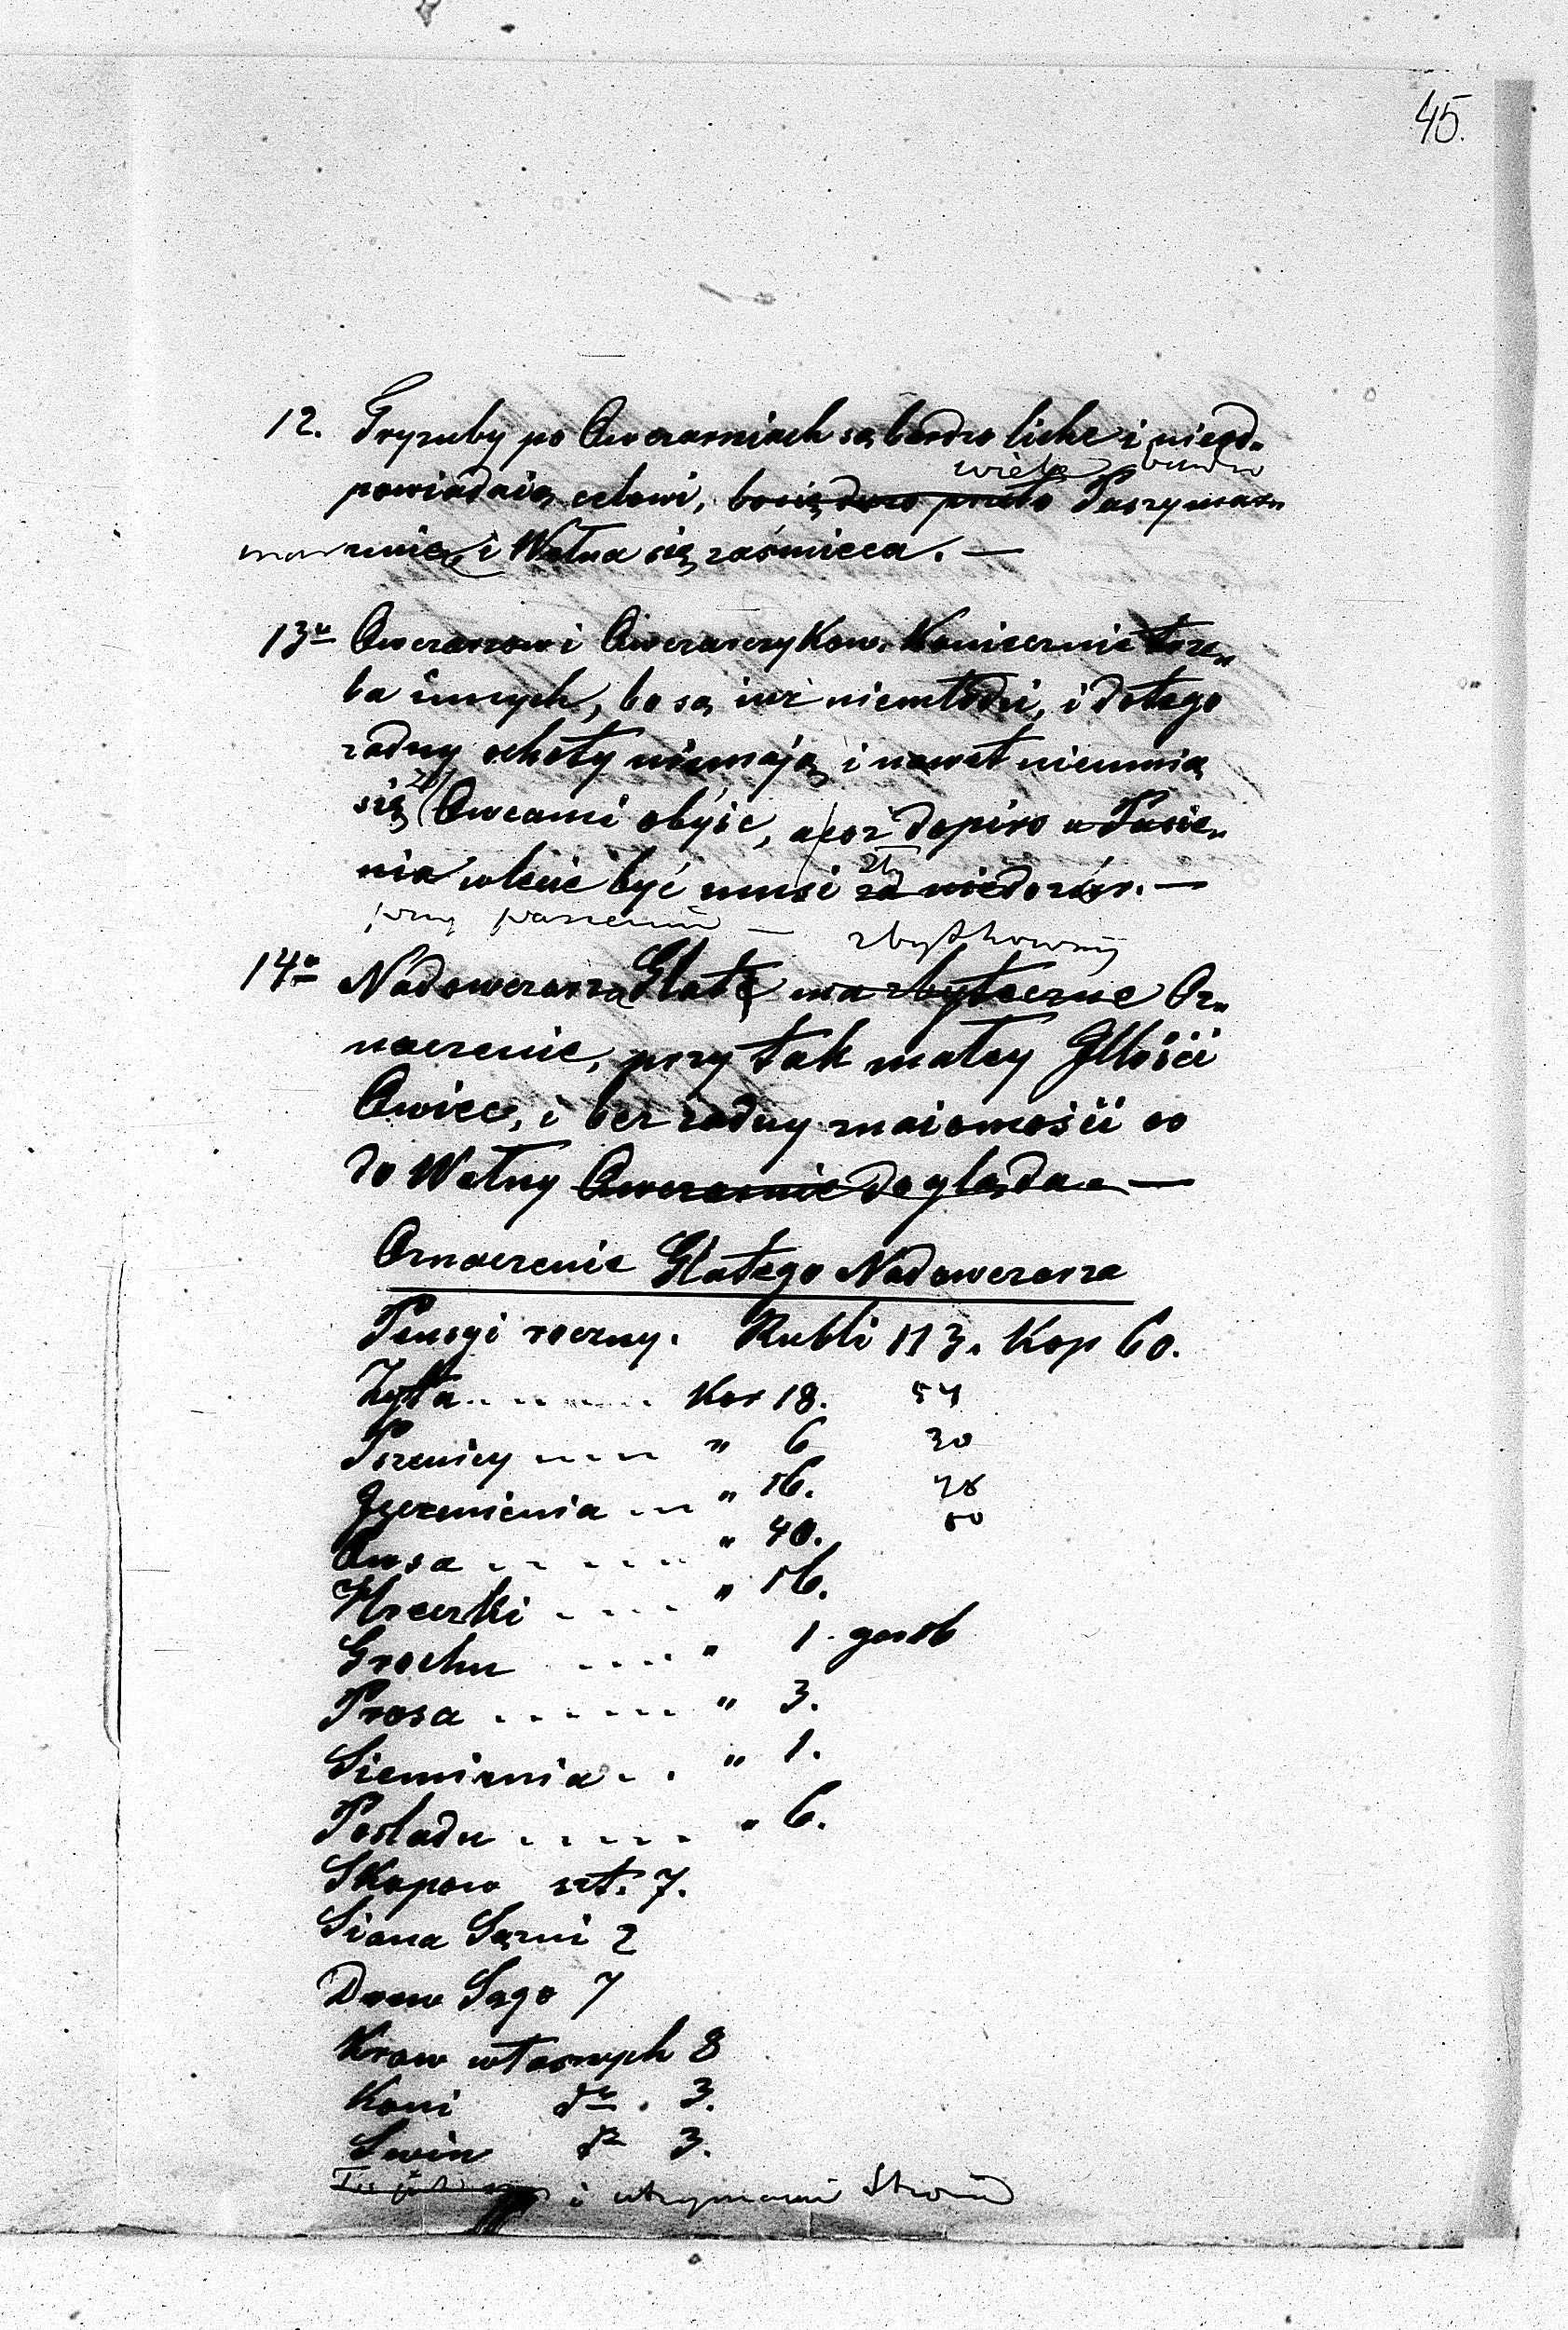 45.
12. Gryzuby po Owczarniach są bardzo liche i nieod„
wiele
powiadaią celowi, bo się dużo przeto Paszy mar„
mar nuie i Wełna się zaśmieca. —
13o Owczarzow i Owczarczykow. Koniecznie trze„
ba innych, bo są iuż niemłodzi, i dotego
żadny ochoty niemaią i nawet nieumią
się z Owcami obyśc, a coż dopiro u Pasie„
nia wlecie być musi za niedozór. —
przy pasieniu — zbytkowny
14o Nadowczarza Glate ma zbyteczne Oz„
naczenie, przy tak małey Jllości
Owiec, i bez żadny znaiomości co
do Wełny Owczarnie dogląda —
Oznaczenie Glatego Nadowczarza
Pensyi roczny. Rubli 113. Kop 60.
Żyta . . . . . Kor 18. 54
Pszenicy . . . . „ 6 30
Jęczmienia . . . „ 16. 48
Owsa . . . . . . „ 40. 80
Hreczki . . . . „ 16.
Grochu . . . . „ 1. gar 16
Prosa . . . . . . „ 3.
Siemienia . . „ 1.
Pośladu . . . . . „ 6.
Skopow szt. 7.
Siana Sązni 2
Drew Sągo 7
Krow własnych 8
Koni do . 3.
Swin do 3.
i utrzymanie